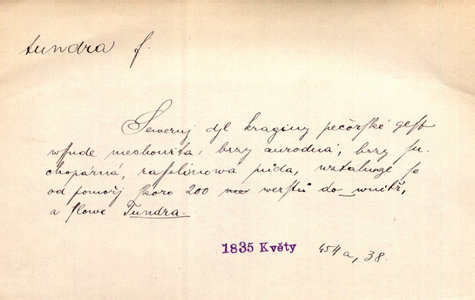 tundra f.
Severnj djl kraginy pečorské gest
wssude mechowitá, brzy aurodná, brzy su-
choparná, rašelinowa půda, wztahuge se
od pomořj skoro 200 werstů do wnitř,
a slowe Tundra.
1835 Květy 454a, 38.